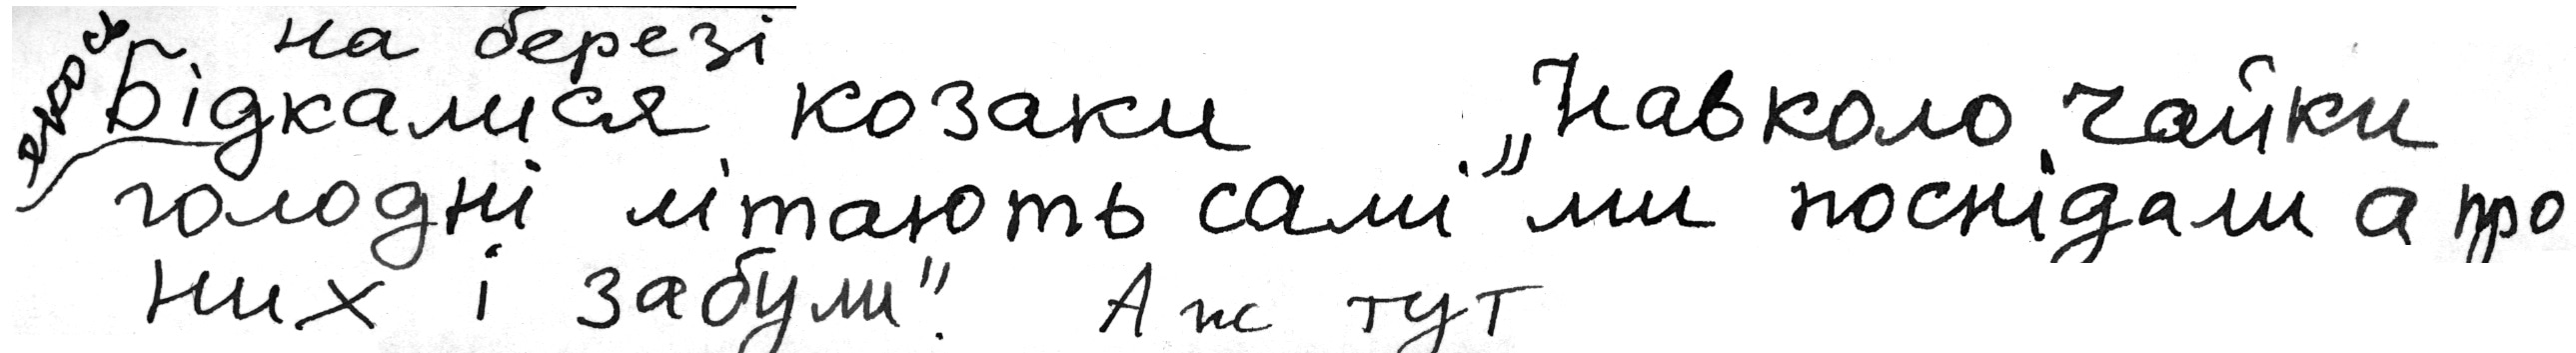 на березі
Бідкалися козаки „Навколо чайки
голодні літають самі ми поснідали а про
них і забули". Аж тут